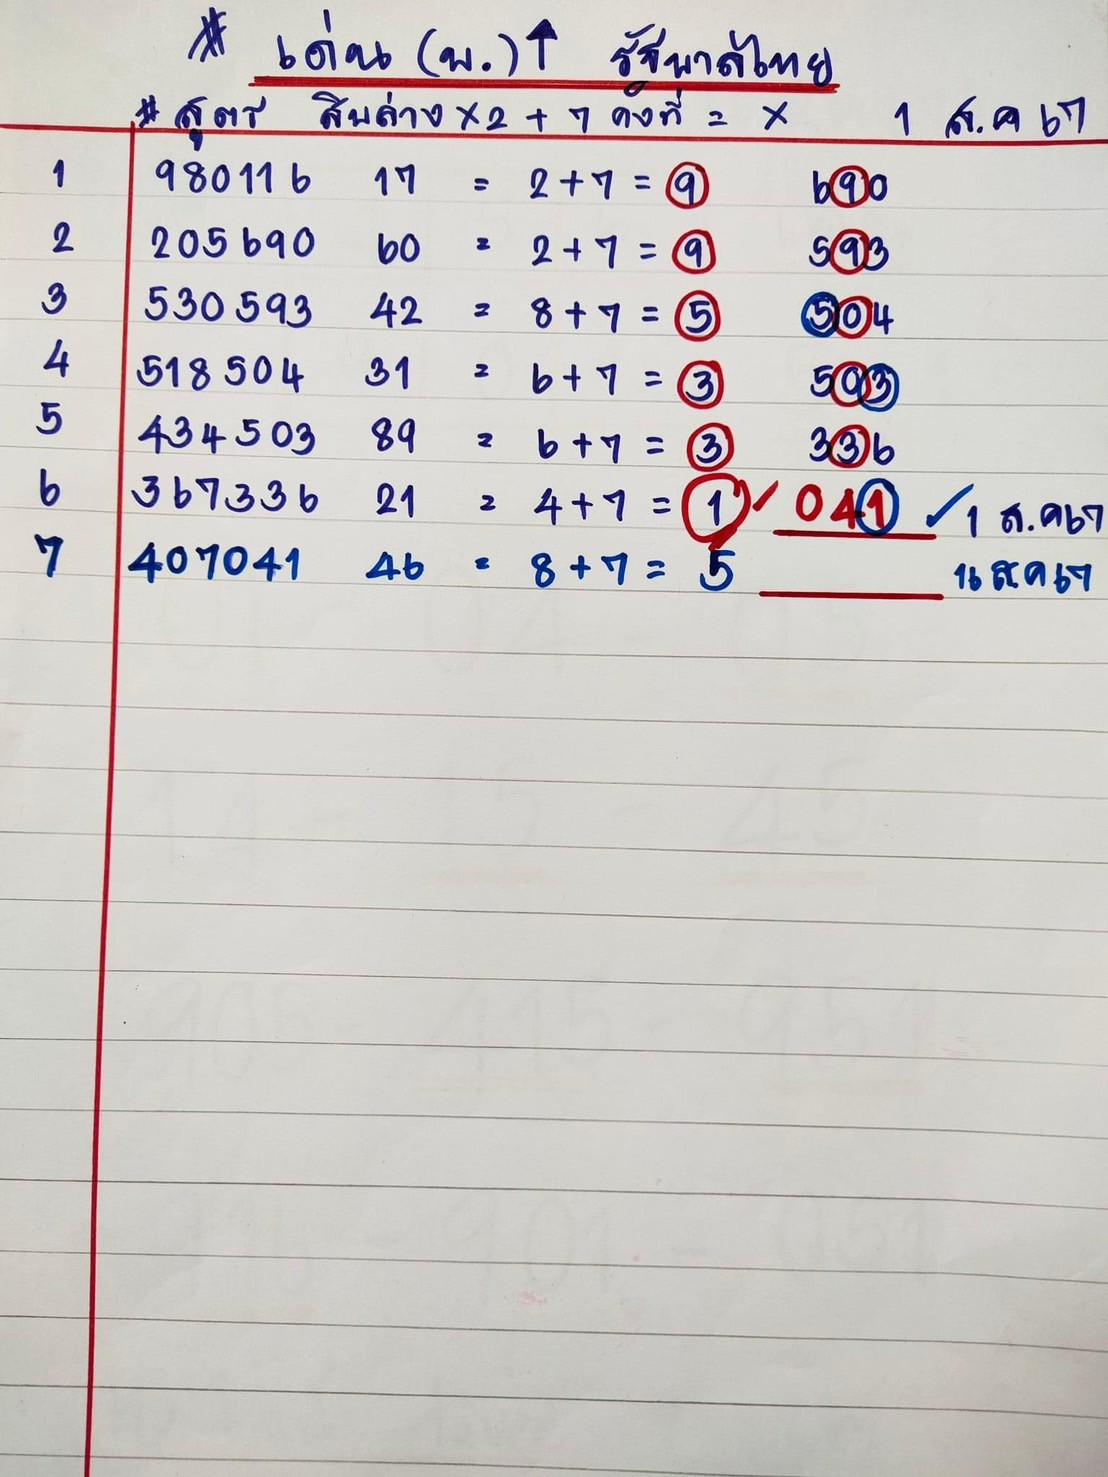 # เด่น (พ.) ↑ รัฐบาลไทย
# สูตร สิบล่าง x2 + 7 คงที่ = x 1 ส.ค 67
1 980116 17 = 2+7 = 9 690
2 205690 60 = 2+7 = 9 593
3 530593 42 = 8+7 = 5 504
4 518504 31 = 6+7 = 3 503
5 434503 89 = 6+7 = 3 336
6 367336 21 = 4+7 = 1 ✓ 041 ✓ 1 ส.ค 67
7 407041 46 = 8+7 = 5 16 ส.ค 67